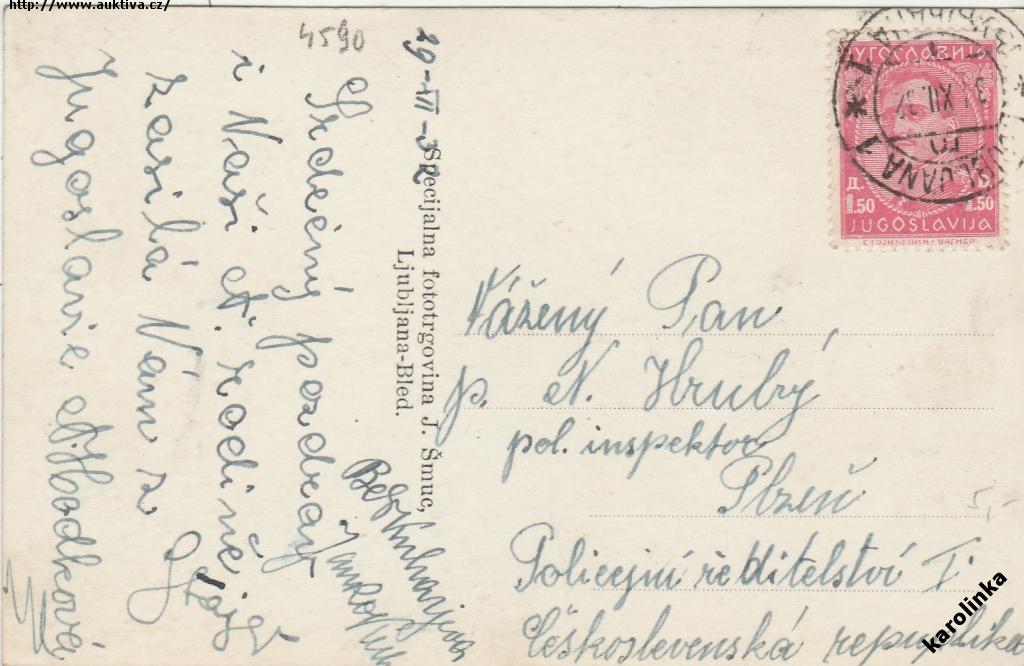 http://www.auktiva.cz/
4590
29-XII-32
Srdečný pozdrav
i Vaší ct. rodině
zasílá Vám z
Jugoslavie A. Hodková
Specijalna fototrgovina J. Šmuc,
Ljubljana-Bled.
ЈУГОСЛАВИЈА
Д. D.
1.50 1.50
JUGOSLAVIJA
СТОЈИЋЕВИЋ-ВАГНЕР
LJUBLJANA 1
XII. 32
Vážený Pan
p. A. Hrubý
pol. inspektor
Plzeň
Policejní ředitelství I.
Československá republika
5,-
karolinka